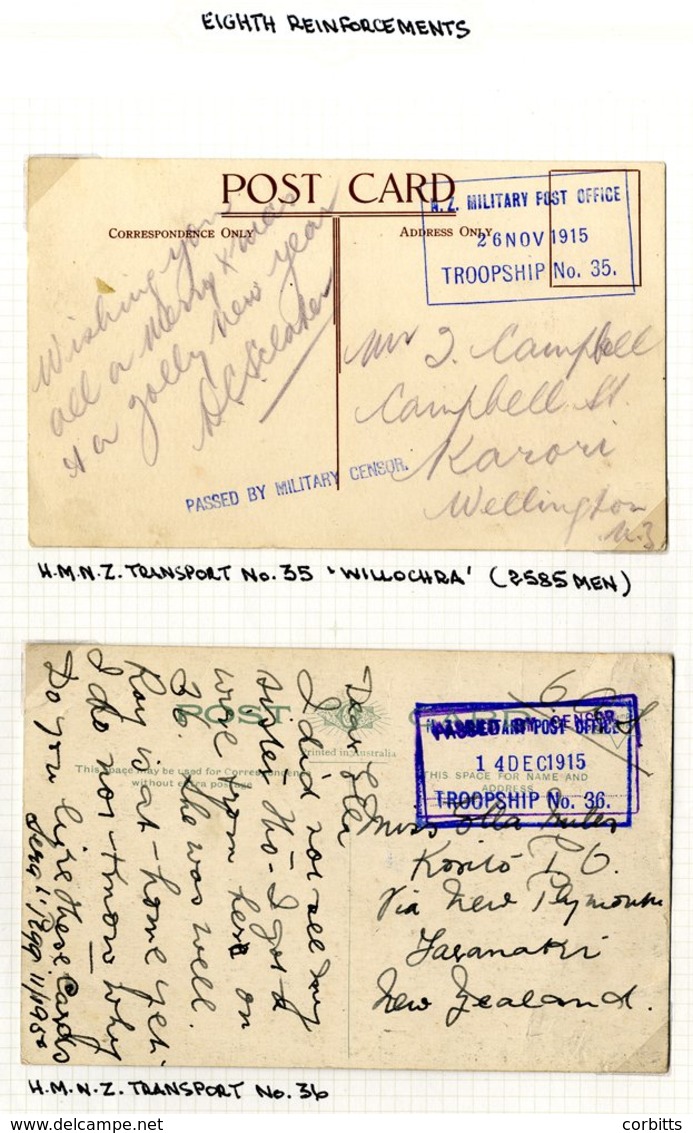 EIGHTH REINFORCEMENTS
POST CARD
CORRESPONDENCE ONLY
ADDRESS ONLY
N.Z. MILITARY POST OFFICE
26 NOV 1915
TROOPSHIP No. 35.
Wishing you
all a merry Xmas
& a jolly new year
Mr J. Campbell
Campbell St.
Karori
Wellington
N.Z.
PASSED BY MILITARY CENSOR.
H.M.N.Z. TRANSPORT No. 35 'WILLOCHRA' (2585 MEN)
POST
Printed in Australia
This space may be used for Correspondence
without extra postage
THIS SPACE FOR NAME AND
ADDRESS
PASSED BY CENSOR
MILITARY POST OFFICE
14 DEC 1915
TROOPSHIP No. 36.
Dear Ella
I did not see my
sister tho- I got a
wire from her on
26. She was well.
Ray is at home yet.
I do not know why
Do you like these Cards
Miss Ella
P.O.
Via New Plymouth
Taranaki
New Zealand.
H.M.N.Z. TRANSPORT No. 36
corbitts